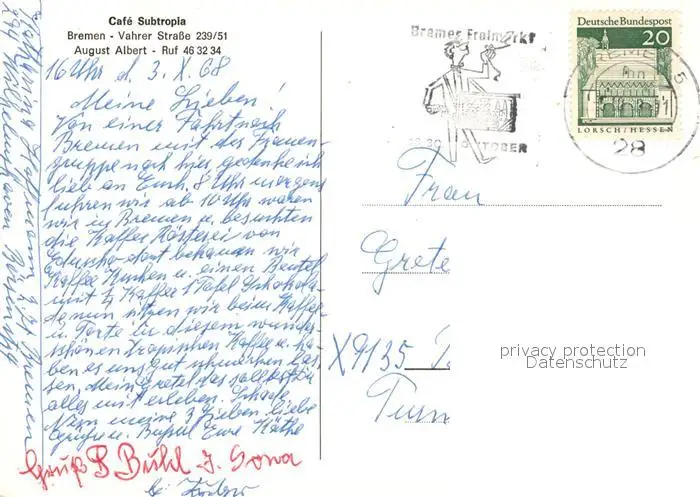 Café Subtropia
Bremen - Vahrer Straße 239/51
August Albert - Ruf 46 32 34
16 Uhr d. 3. X. 68
Meine Lieben!
Von einer Fahrt nach
Bremen mit der Frauen-
gruppe nach hier gedenke ich
lieb an Euch. 8 Uhr morgens
fuhren wir ab 10 Uhr waren
wir in Bremen u. besuchten
die Kaffee Rösterei von
Eduscho dort bekamen wir
Kaffee Kuchen u. einen Beutel
mit ¼ Kaffee 1 Tafel Schokola-
de nun sitzen wir beim Kaffee
u. Torte in diesem wunder-
schönen tropischen Kaffee u. ha-
ben es uns gut schmecken las-
sen, Mein Gretel das solltest Du
alles mit erleben. Schade
Nun meine 3 Lieben liebe
Grüße u. Bussel Eure Käthe
Gruß B Buhl J. Sowa
Bremer Freimarkt
OKTOBER
Deutsche Bundespost
20
LORSCH/HESSEN
BREMEN 5
28
Frau
Grete
X9135
privacy protection
Datenschutz